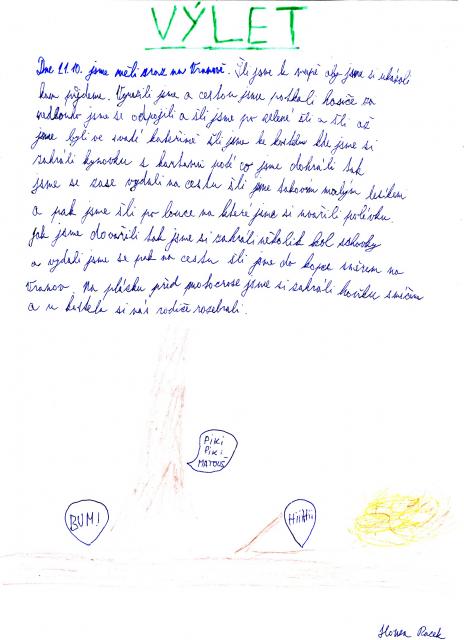 VÝLET
Dne 11.10. jsme měli sraz na Vranově. Šli jsme k mapě aby jsme si ukázali
kam půjdeme. Vyrazili jsme a cestou jsme potkali hasiče za
jsme se odpojili a šli jsme po zelené šli a šli až
jsme byli ve svaté kateřině šli jsme ke kostelu kde jsme si
zahráli kynovku s kartami poté co jsme dohráli tak
jsme se zase vydali na cestu šli jsme takovém malým lesíkem
a pak jsme šli po louce na které jsme si uvařili polévku.
Jak jsme dovařili tak jsme si zahráli několik kol schovky
a vydali jsme se pak na cestu šli jsme do kopce směrem na
Vranov. Na plácku před motocrose jsme si zahráli honičku
a u kostela si nás rodiče rozebrali.
PIKI
PIKI
MATOUŠ
BUM!
HiiHii
Racek